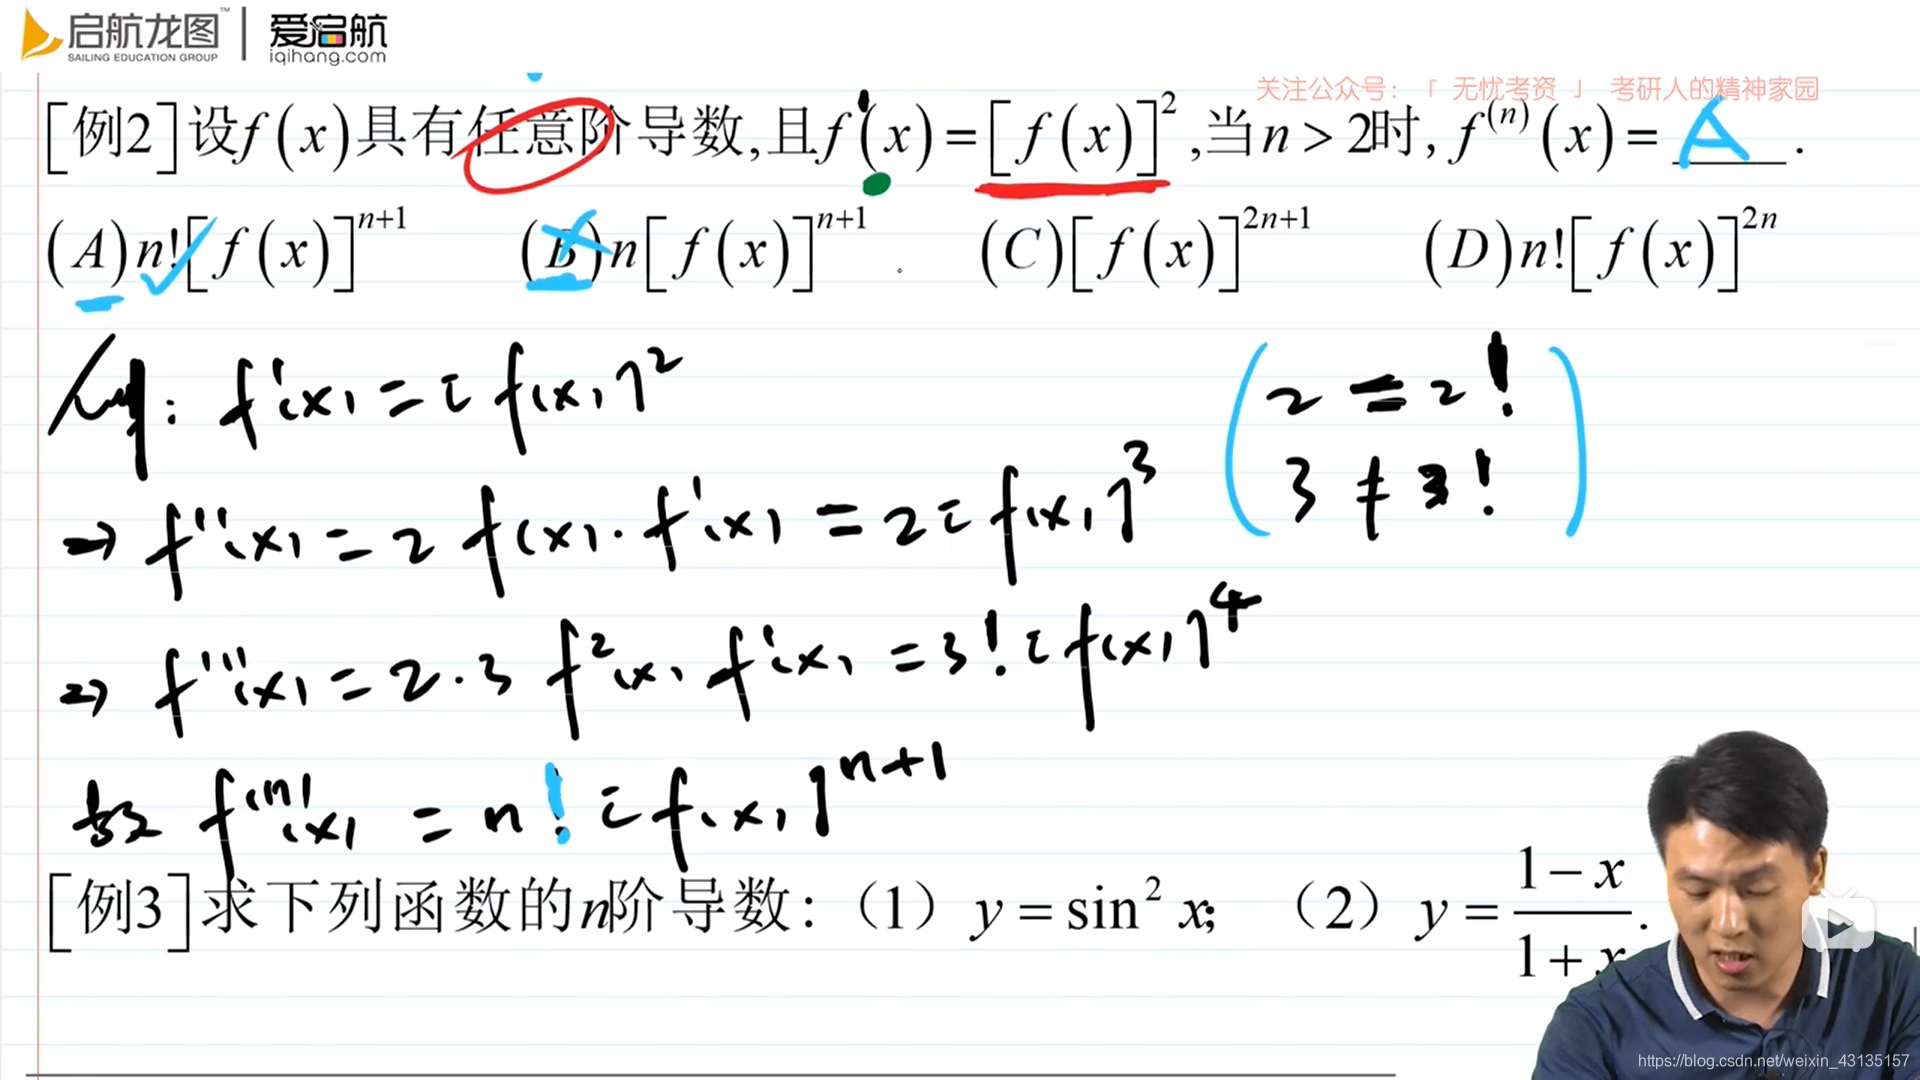 启航龙图 爱启航
SAILING EDUCATION GROUP iqihang.com
关注公众号：「 无忧考资 」 考研人的精神家园
[例2]设f(x)具有任意阶导数,且f'(x)=[f(x)]²,当n>2时,f⁽ⁿ⁾(x)= A .
(A)n![f(x)]ⁿ⁺¹ (B)n[f(x)]ⁿ⁺¹ (C)[f(x)]²ⁿ⁺¹ (D)n![f(x)]²ⁿ
: f'(x)=[f(x)]² 2=2!
⇒ f''(x)=2f(x)·f'(x)=2[f(x)]³ 3≠3!
⇒ f'''(x)=2·3f²(x)f'(x)=3![f(x)]⁴
故 f⁽ⁿ⁾(x)=n![f(x)]ⁿ⁺¹
[例3]求下列函数的n阶导数:（1）y=sin²x;（2）y=(1-x)/(1+x).
https://blog.csdn.net/weixin_43135157